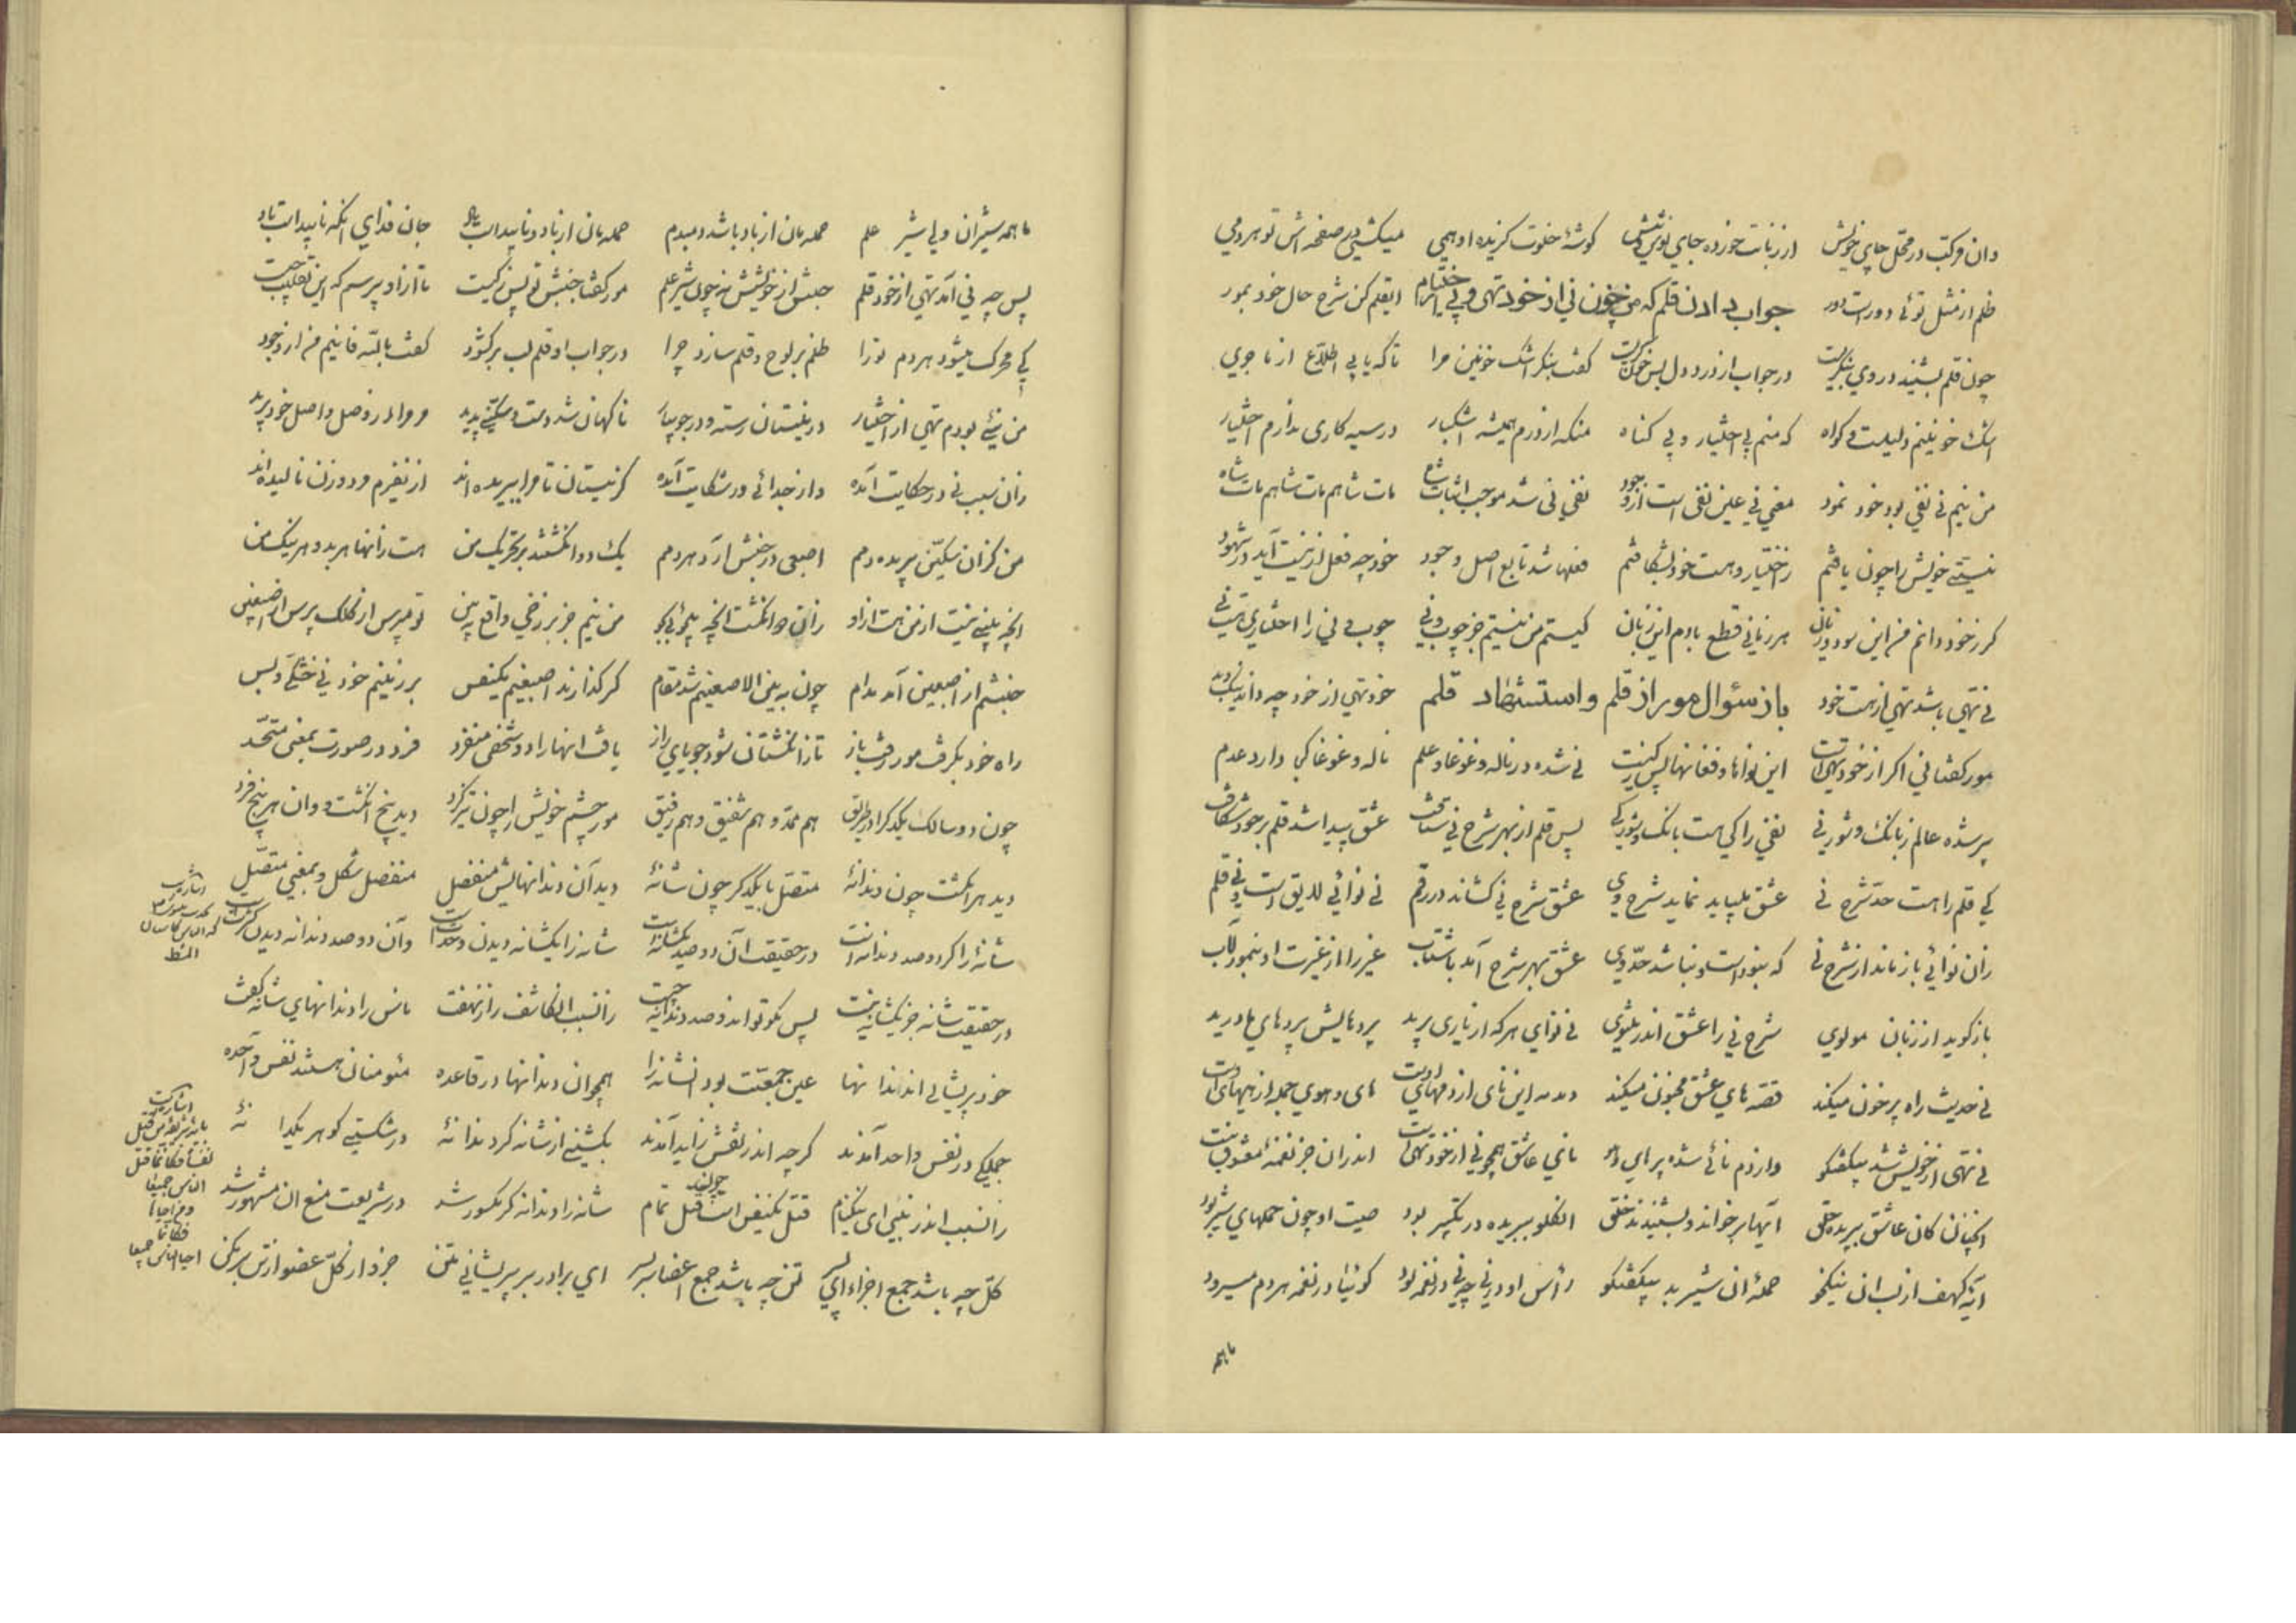 دان مرکب در محل جای خویش از زبانت خورده جای نوش نیش کوشهٔ خلوت کزیده او همی میکشی در صفحه اش تو هر دمی
ظلم از مثل توئی دور است دور جواب دادن قلم که من چون نی از خود تهی و بی اختیارم ایقلم کن شرح حال خود بمور
چون قلم بشنید در وی بنکریست در جواب از درد دل بس خون کریست کفت بنکر اشک خونین مرا تا که یابی اطلاع از ماجری
اشک خونینم دلیلست و کواه که منم بی اختیار و بی کناه منکه از دردم همیشه اشکبار در سیه کاری ندارم اختیار
من نیم نی نفی بود خود نمود معنی نی عین نفی است از وجود نفی نی شد موجب اثبات شاه مات شاهم مات شاهم مات شاه
نیستی خویش را چون یافتم ز اختیار و هست خود بشکافتم فعلها شد تابع اصل وجود خود چه فعل از نیست آید در شهود
کر ز خود دانم من این سود و زیان هر زمانی قطع بادم این زبان کیستم من نیستم جز چوب و نی چوب و نی را اختیاری نیست نی
نی تهی باشد تهی از هست خود باز سؤال مور از قلم و استنطاق قلم خود تهی از خود چه داند نیک و بد
مور کفتا نی اکر از خود تهی است این نواها و فغانها پس ز کیست نی شده در ناله و غوغا و علم ناله و غوغا کی دارد عدم
پر شده عالم ز بانک و شور نی نفی را کی هست بانک و شور کی پس قلم از بهر شرح نی شتافت عشق پیدا شد قلم بر خود شکافت
کی قلم را هست حد شرح نی عشق میباید نماید شرح وی عشق شرح نی کشاند در رقم نی نوائی لایق است و نی قلم
زان نوائی باز ماند از شرح نی که نبوده است و نباشد حد وی عشق بهر شرح آمد با شتاب غیر را از غیرت او بنمود آب
باز کوید از زبان مولوی شرح نی را عشق اندر مثنوی نی نوای هر که از یاری برید پردهایش پردهای ما درید
نی حدیث راه پر خون میکند قصه های عشق مجنون میکند دمدمه این نای از دمهای اوست های و هوی جمله از هیهای اوست
نی تهی از خویش شد بیکفتکو وز دم نائی شده پر های و هو نای عاشق همچو نی از خود تهی است اندران جز نغمهٔ معشوق نیست
آنچنان کان عاشق ببریده حلق آیها برخواند و بشنیدند خلق آن کلو ببریده در تکبیر بود صیت او چون حملهای شیر بود
آیه کهف از لب آن نیکخو حملهٔ آن شیر بد بیکفتکو رأس او در نی چو نی در نغمه بود کوئیا در نغمه هر دم میسرود
ما همه
ما همه شیران ولی شیر علم حمله مان از باد باشد دمبدم حمله مان از باد و ناپیداست باد جان فدای آنکه ناپیداست باد
پس چه نی آمد تهی از خود قلم جنبش از خویشش نه چون شیر علم مور کفتا جنبش تو پس ز کیست تا از او پرسم که این تقلیب چیست
کی محرک میشود هر دم ترا ظلم بر لوح و قلم سازد چرا در جواب او قلم لب بر کشود کفت بالله فانیم من از وجود
من نیی بودم تهی از اختیار در نیستان رسته و در جویبار ناکهان شد دست و سکینی پدید مر مرا از وصل و اصل خود برید
زان سبب نی در حکایت آمده وز جدائی در شکایت آمده کز نیستان تا مرا ببریده اند از نفیرم مرد و زن نالیده اند
من کز آن سکین بریده دمم اصبعی در جنبش آرد هر دمم یک دو انکشتند بر تحریک من هست ز آنها هر بد و هر نیک من
آنچه بینی نیست از من هست از او زان دو انکشت آنچه میجوئی بجو من نیم جز برزخی واقع ببین تو مپرس از کلک پرس از اصبعین
جنبشم از اصبعین آمد مدام چون به بین الاصبعینم شد مقام کر کذارند اصبعینم یکنفس بر زمینم خود نی خشکی و بس
راه خود بکرفت مور و رفت باز تا ز انکشتان شود جویای راز یافت آنها را دو شخص منفرد فرد در صورت بمعنی متحد
چون دو سالک یکدکر را در طریق هم ممد و هم شفیق و هم رفیق مور چشم خویش را چون تیز کرد دید پنج انکشت و وان هر پنج فرد
دید هر انکشت چون دندانهٔ متصل با یکدکر چون شانهٔ دید آن دندانهایش منفصل منفصل شکل و بمعنی متصل
شانه را کر دو صد دندانه است در حقیقت آن دو صد یکشانه است شانه را یکشانه دیدن وحدت است وآن دو صد دندانه دیدن کثرت است
در حقیقت شانه جز یکشانه نیست پس بکو تو اند و صد دندانه چیست زانسبب آن کاشف راز نهفت ناس را دندانهای شانه کفت
خود پریشانی اند اند آنها عین جمعیت بود آنشانه را همچو آن دندانها در قاعده مئومنان هستند نفس واحده
جملکی در نفس واحد آمدند کر چه اندر نقش زاید آمدند بکشنی از شانه کر دندانهٔ در شکستی کوهر یکدانهٔ
زانسبب اندر نبی ای نیکنام قتل یکنفس است چون قتل تمام شانه را دندانه کر مکسور شد در شریعت منع آن مشهور شد
کل چه باشد جمع اجزاء ای پسر تن چه باشد جمع اعضا سر بسر ای برادر بر پریشانی متن جزو از کل عضو از تن بر مکن
اشارت
الناس کاسنان
المشط
اشارت
قتل
نفسا فکانما قتل
الناس جمیعا
و من احیاها
فکانما
احیا الناس جمیعا